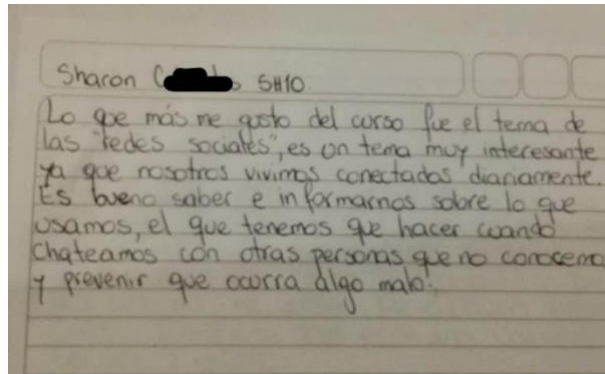 Sharon 5H10.
Lo que más me gusto del curso fue el tema de
las "redes sociales", es un tema muy interesante
ya que nosotros vivimos conectados diariamente.
Es bueno saber e informarnos sobre lo que
usamos, el que tenemos que hacer cuando
chateamos con otras personas que no conocemo
y prevenir que ocurra algo malo.